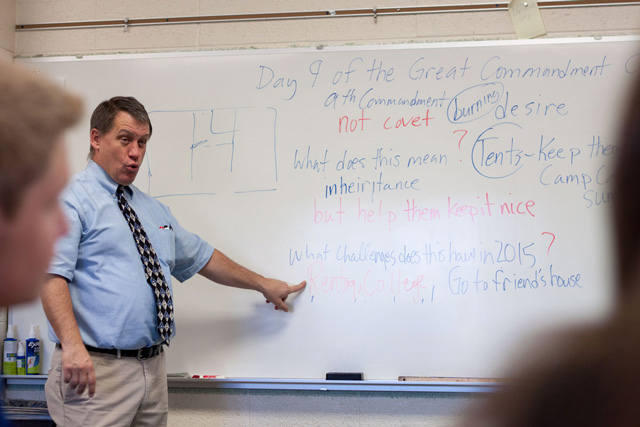 Day 9 of the Great Commandment
9th Commandment burning desire
not covet
What does this mean ?
Tents - Keep them
inheiritance
Camp
but help them keep it nice
What challenges does this have in 2015 ?
College Go to friend's house